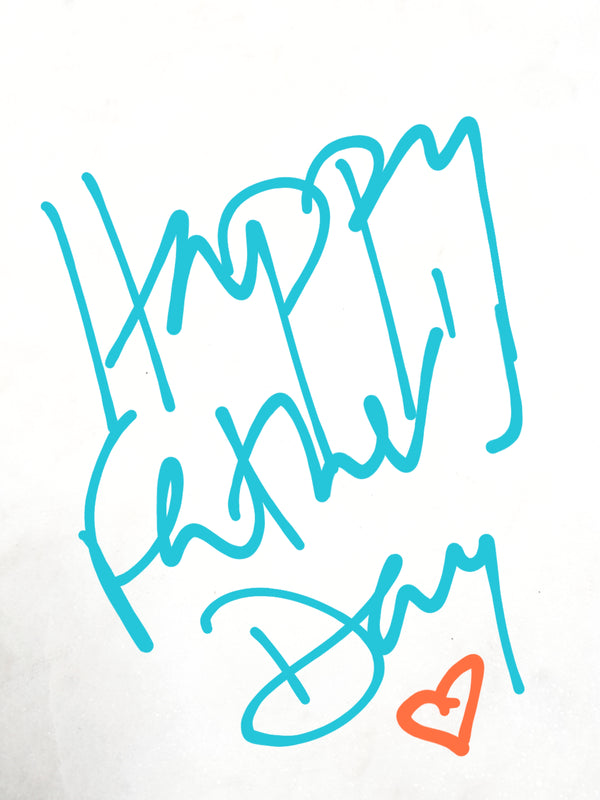 Happy
Father's
Day